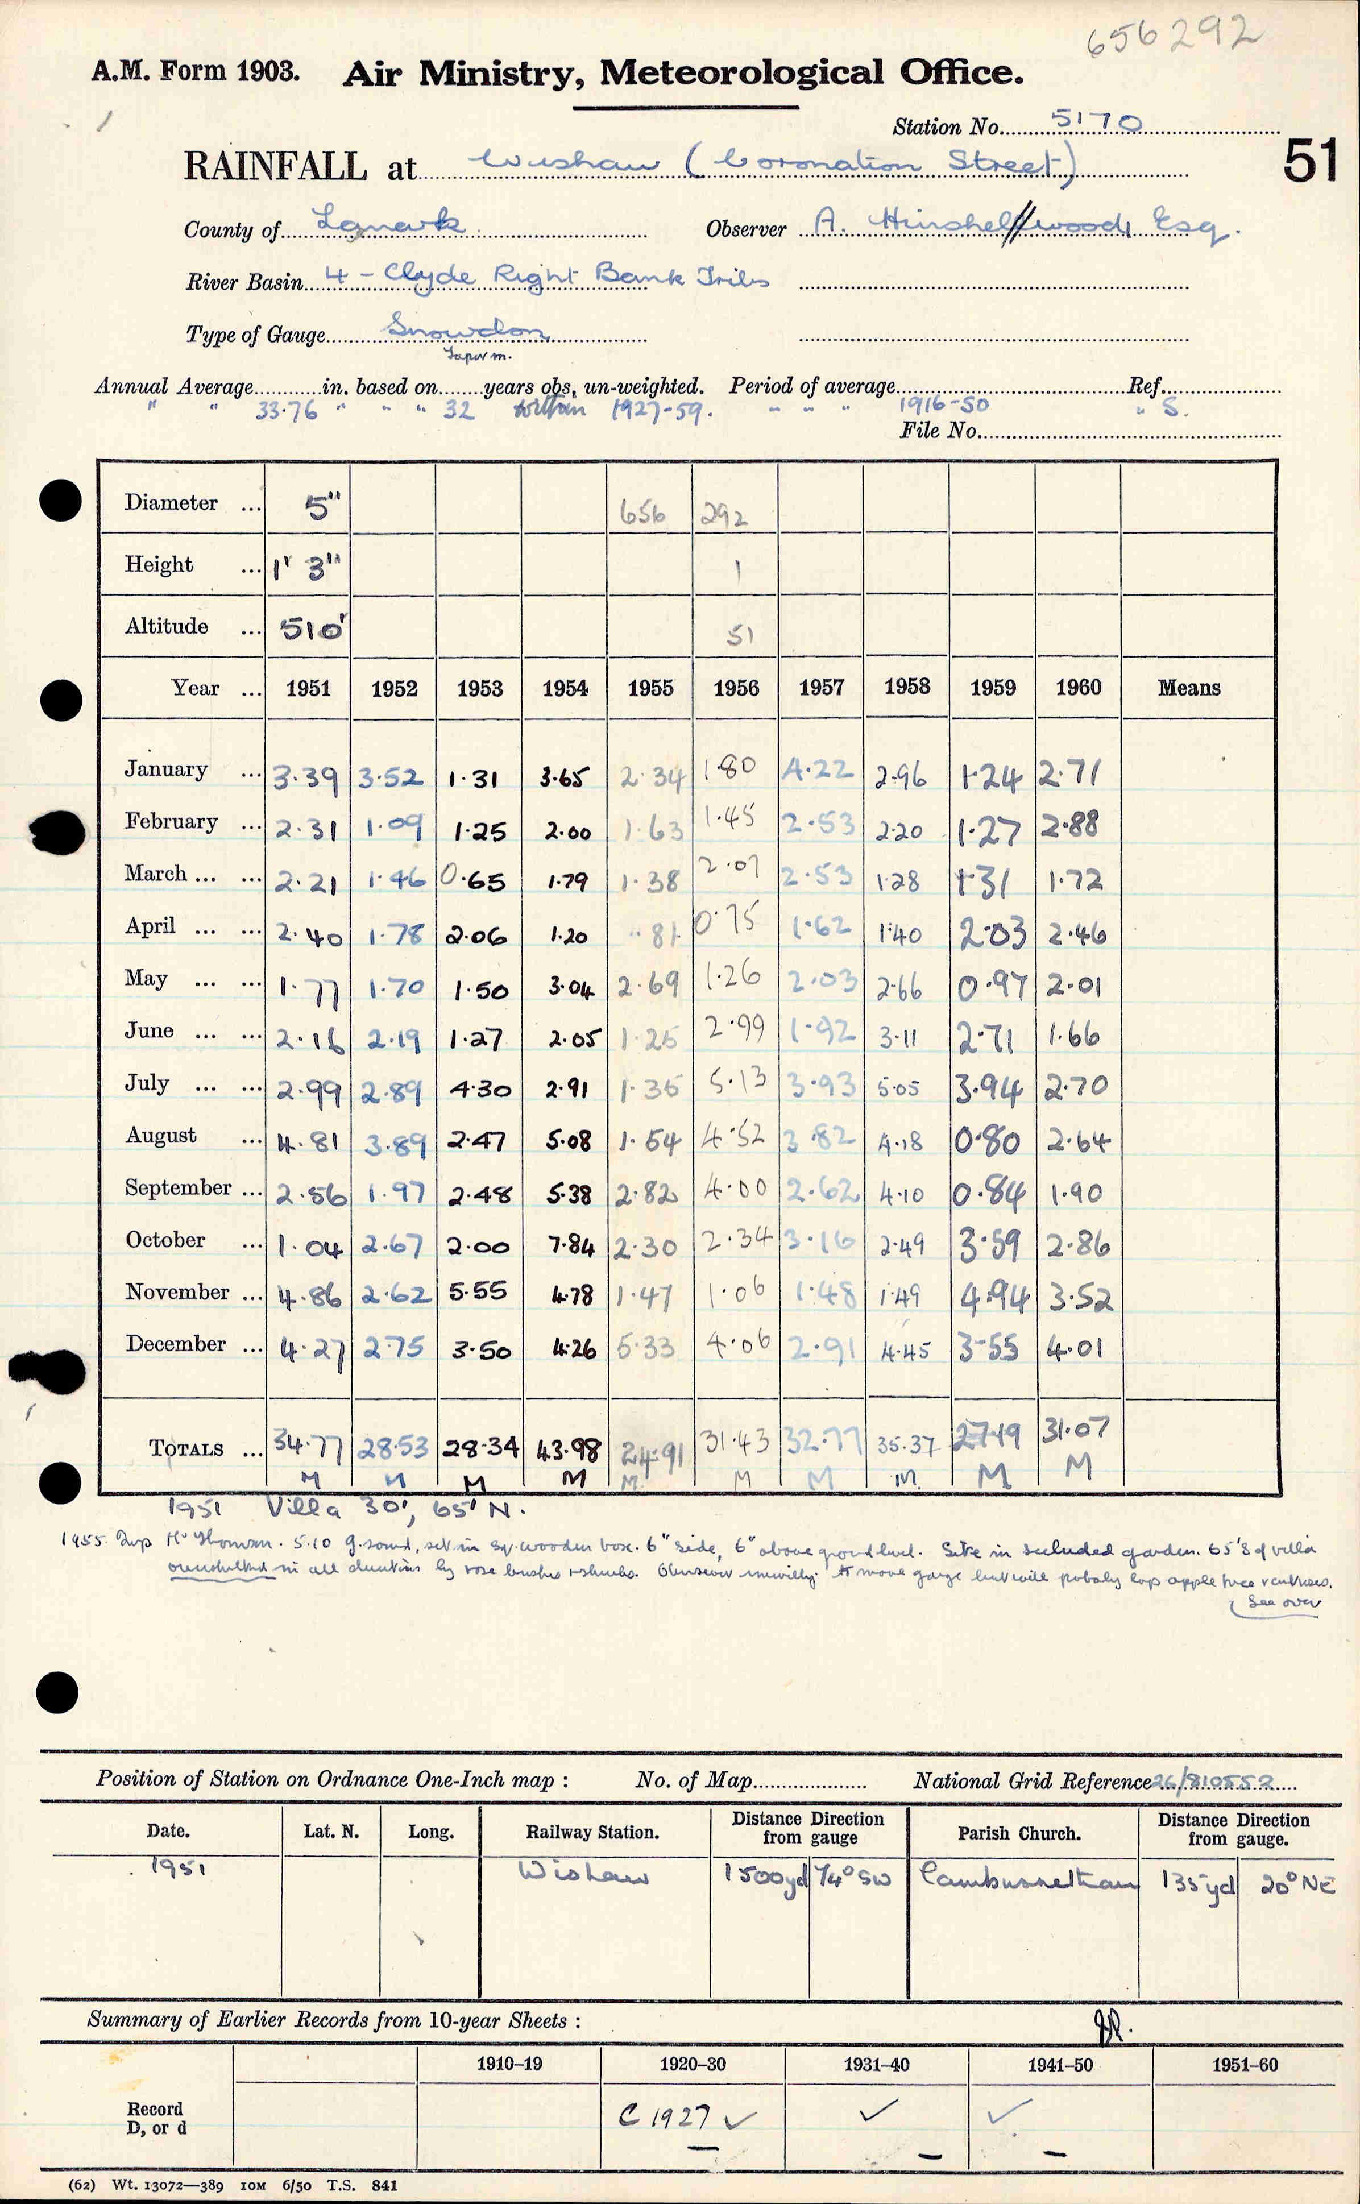 656292
A.M. Form 1903. Air Ministry, Meteorological Office.
Station No. 5170
51
RAINFALL at Wishaw (Coronation Street)
County of Lanark Observer A. Hinshelwood, Esq.
River Basin 4 - Clyde Right Bank Tribs
Type of Gauge Snowdon
Annual Average in. based on years obs, un-weighted. Period of average Ref.
" " 33.76 " " " 32 within 1927-59. " " " 1916-50 " S.
File No.
Diameter ... 5" 656 292
Height ... 1' 3" 1
Altitude ... 510' 51
Year ... 1951 1952 1953 1954 1955 1956 1957 1958 1959 1960 Means
January ... 3.39 3.52 1.31 3.65 2.34 1.80 4.22 2.96 1.24 2.71
February ... 2.31 1.09 1.25 2.00 1.63 1.45 2.53 2.20 1.27 2.88
March ... ... 2.21 1.46 0.65 1.79 1.38 2.07 2.53 1.28 1.31 1.72
April ... ... 2.40 1.78 2.06 1.20 .81 0.75 1.62 1.40 2.03 2.46
May ... ... 1.77 1.70 1.50 3.04 2.69 1.26 2.03 2.66 0.97 2.01
June ... ... 2.16 2.19 1.27 2.05 1.25 2.99 1.92 3.11 2.71 1.66
July ... ... 2.99 2.89 4.30 2.91 1.35 5.13 3.93 5.05 3.94 2.70
August ... 4.81 3.89 2.47 5.08 1.54 4.52 3.82 4.18 0.80 2.64
September ... 2.56 1.97 2.48 5.38 2.82 4.00 2.62 4.10 0.84 1.90
October ... 1.04 2.67 2.00 7.84 2.30 2.34 3.16 2.49 3.59 2.86
November ... 4.86 2.62 5.55 4.78 1.47 1.06 1.48 1.49 4.94 3.52
December ... 4.27 2.75 3.50 4.26 5.33 4.06 2.91 4.45 3.55 4.01
TOTALS ... 34.77 28.53 28.34 43.98 24.91 31.43 32.77 35.37 27.19 31.07
M M M M M M M M M M
1951 Villa 30', 65' N.
1955 Insp Mr Thomson. 5.10 g. sound, set in sq. wooden box. 6" side, 6" above ground level. Site in secluded garden. 65' S of villa
in all directions by rose bushes + shrubs. Observer to move gauge but will probably lop apple tree
See over
Position of Station on Ordnance One-Inch map : No. of Map National Grid Reference 26/810552
Date. Lat. N. Long. Railway Station. Distance Direction from gauge Parish Church. Distance Direction from gauge.
1951 Wishaw 1500yd 74° SW Cambusnethan 135yd 20° NE
Summary of Earlier Records from 10-year Sheets :
1910–19 1920–30 1931–40 1941–50 1951–60
Record D, or d C 1927 ✓ ✓ ✓
(62) Wt. 13072—389 10M 6/50 T.S. 841